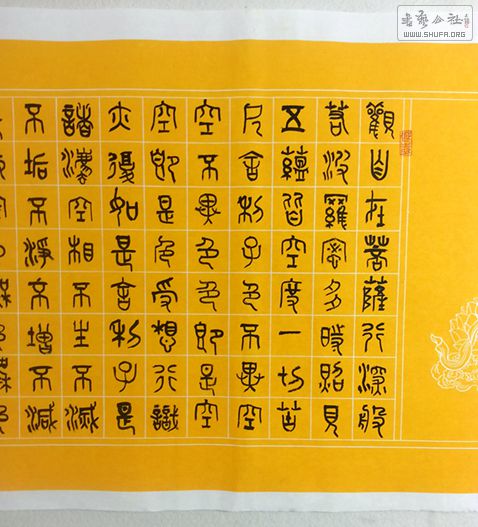 觀自在菩薩行深般
若波羅蜜多時照見
五蘊皆空度一切苦
厄舍利子色不異空
空不異色色即是空
空即是色受想行識
亦復如是舍利子是
諸法空相不生不滅
不垢不淨不增不減
書藝公社
WWW.SHUFA.ORG